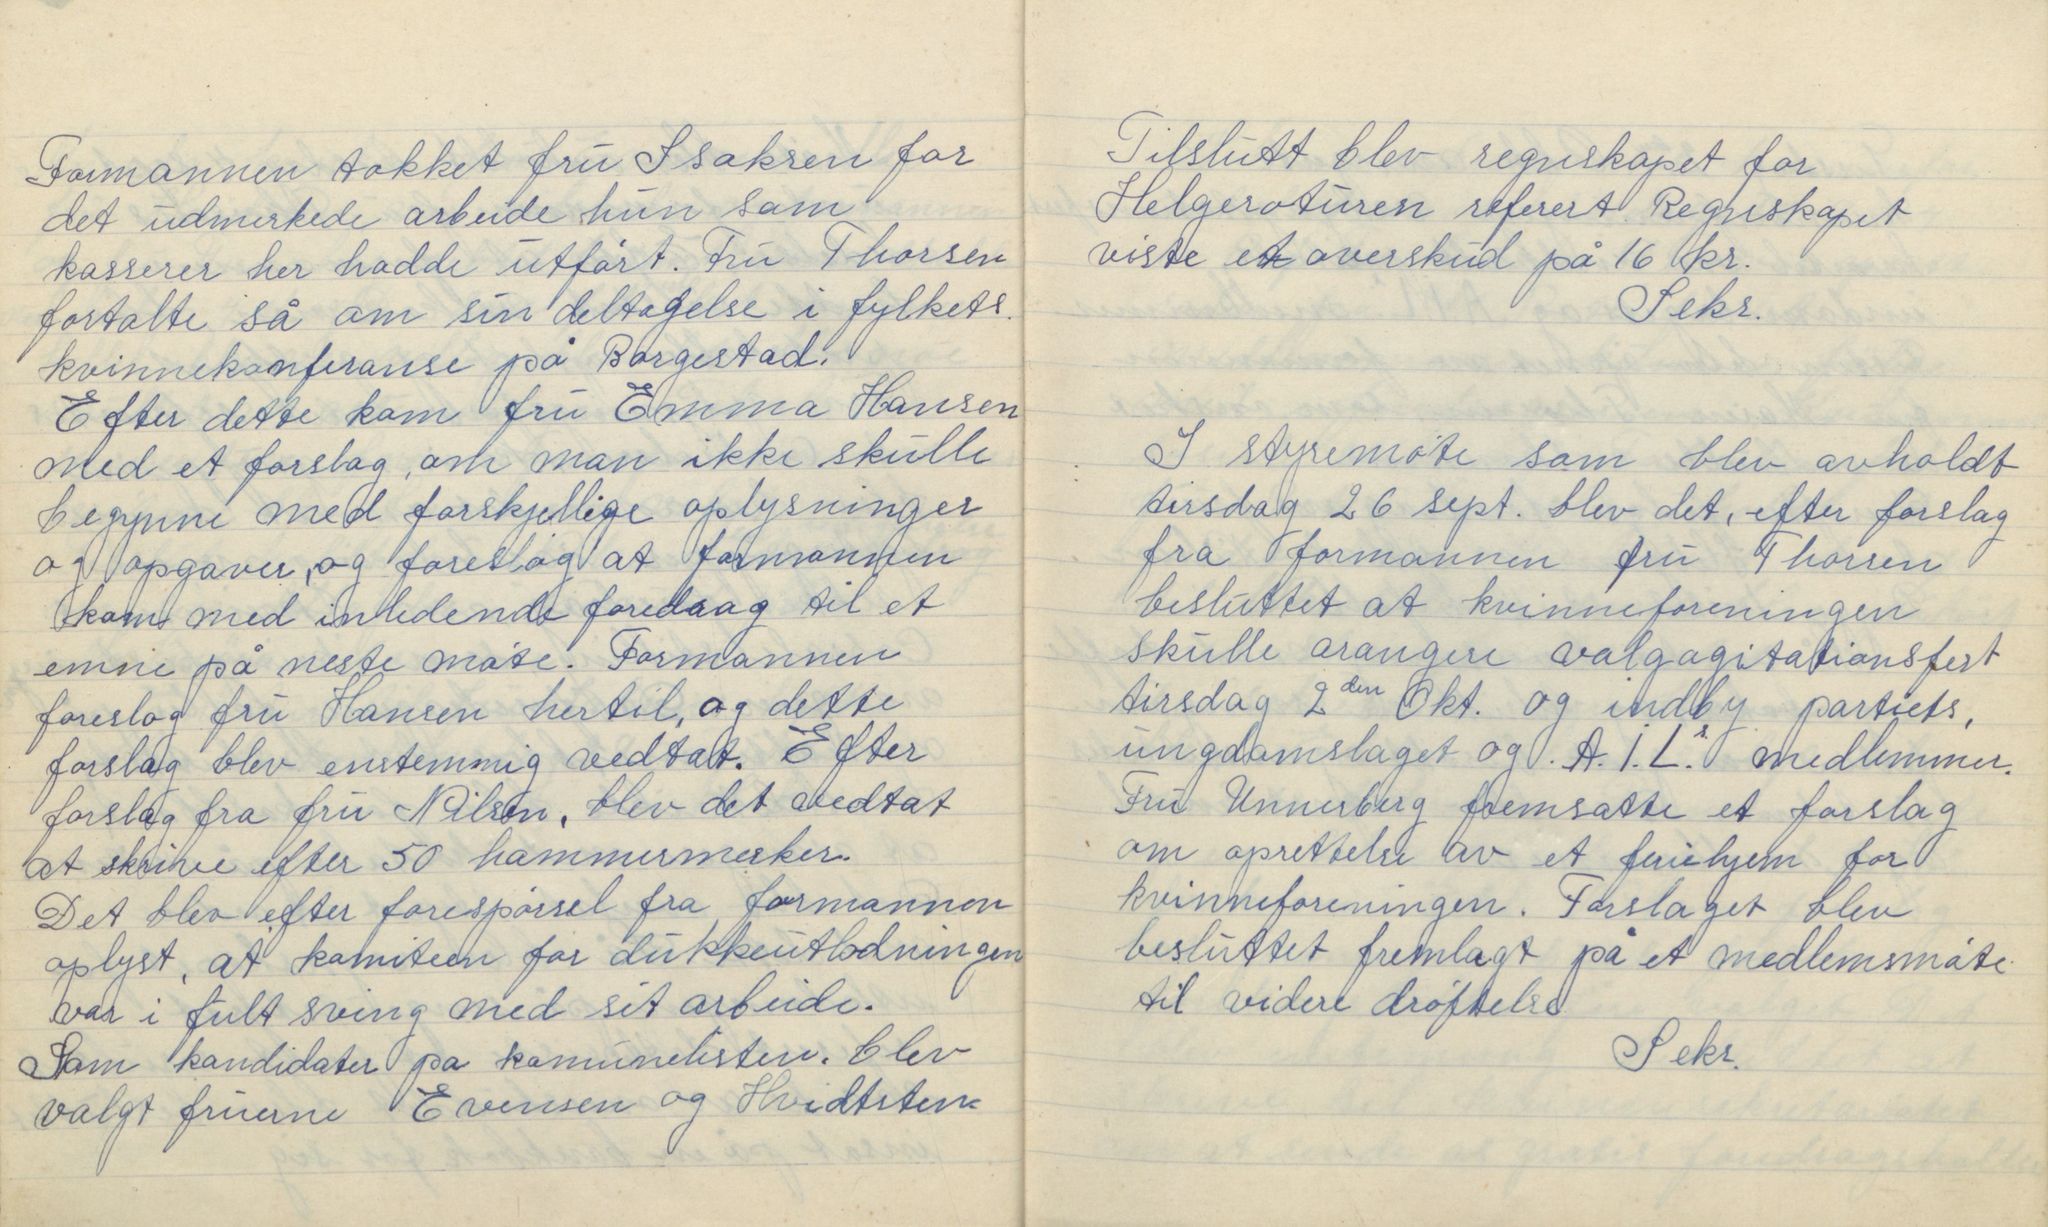 Formannen takket fru Isaksen for
det udmerkede arbeide hun som
kasserer her hadde utført. Fru Thorsen
fortalte så om sin deltagelse i fylkets.
kvinnekonferanse på Borgestad.
Efter dette kom fru Emma Hansen
med et forslag, om man ikke skulle
begynne med forskjellige oplysninger
og opgaver, og foreslog at formannen
kom med inledende foredrag til et
emne på neste møte. Formannen
foreslog fru Hansen hertil, og dette
forslag blev enstemmig vedtat. Efter
forslag fra fru Nilsen, blev det vedtat
at skrive efter 50 hammermerker.
Det blev efter forespørsel fra formannen
oplyst, at komiteen for dukkeutlodningen
var i fult sving med sit arbeide.
Som kandidater på komunelisten. blev
valgt fruerne Evensen og Hvidtsten
Tilslutt blev regnskapet for
Helgeroturen referert. Regnskapet
viste et overskud på 16 kr.
Sekr.
I styremøte som blev avholdt
tirsdag 26 sept. blev det, efter forslag
fra formannen fru Thorsen
besluttet at kvinneforeningen
skulle arangere valgagitationsfest
tirsdag 2den Okt. og indby partiets,
ungdomslaget og A.I.L.s medlemmer.
Fru Unnerberg fremsatte et forslag
om oprettelse av et feriehjem for
kvinneforeningen. Forslaget blev
besluttet fremlagt på et medlemsmøte
til videre drøftelse
Sekr.